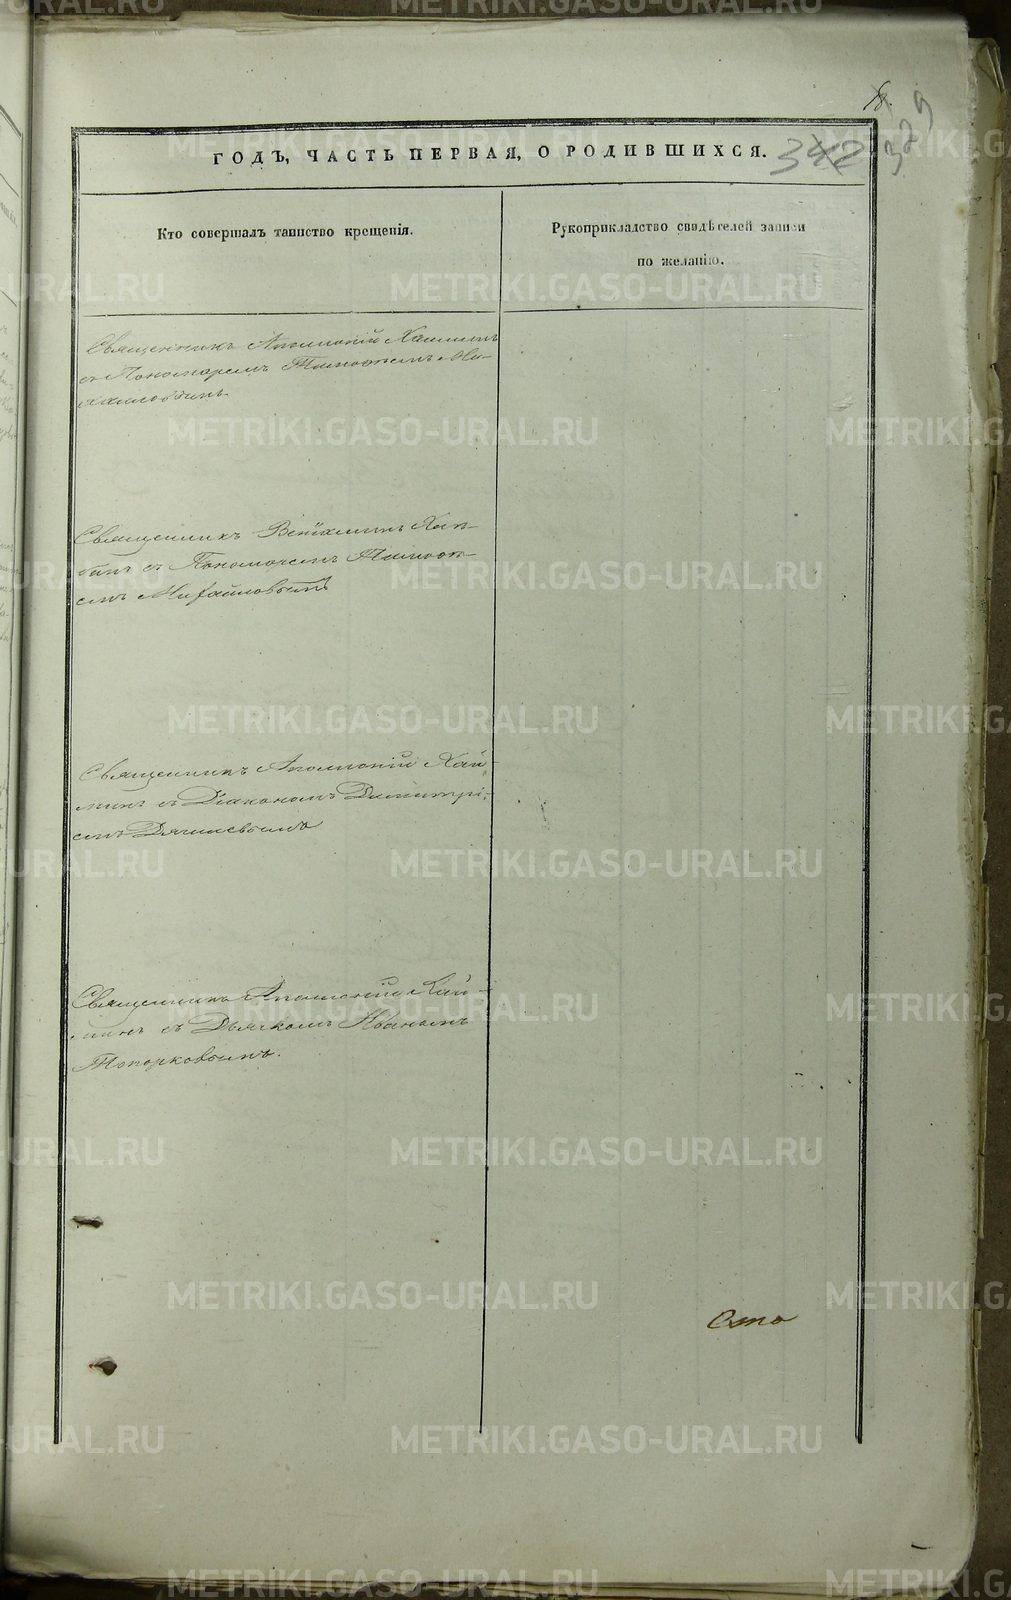 18.
329
342
ГОДЪ, ЧАСТЬ ПЕРВАЯ, О РОДИВШИХСЯ.
Кто совершалъ таинство крещенія.
Рукоприкладство свидѣтелей записи
по желанію.
Священникъ Аполлоній
съ Пономаремъ Тимофеемъ Ми-
хайловымъ
Священникъ Веніаминъ
съ Пономаремъ Тимоѳе-
емъ Михайловымъ
Священникъ Аполлоній Хай-
минъ съ Діакономъ Димитрі-
емъ Дягилевымъ
Священникъ Аполлоній Хай-
минъ съ Дьячкомъ Иваномъ
Топорковымъ.
Сто
METRIKI.GASO-URAL.RU